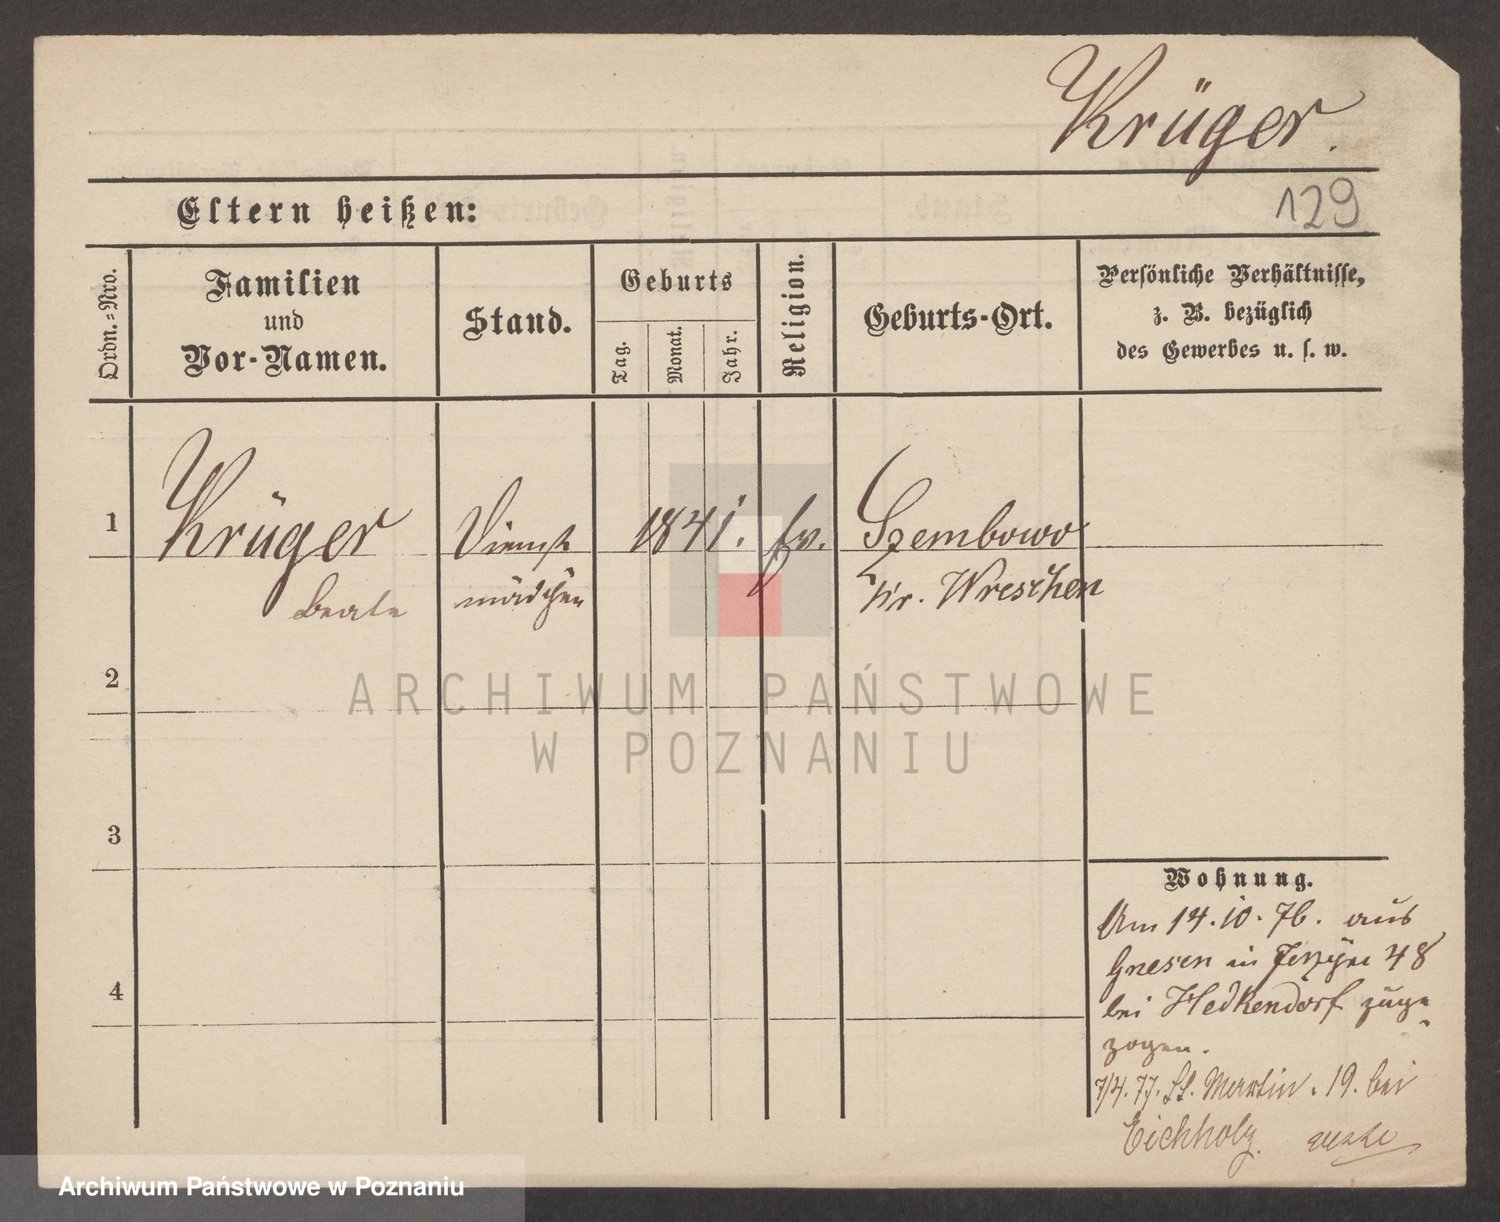 Krüger.
129
Eltern heißen:
Ordn.=Nro.
Familien
und
Vor-Namen.
Stand.
Geburts
Tag.
Monat.
Jahr.
Religion.
Geburts-Ort.
Persönliche Verhältnisse,
z. B. bezüglich
des Gewerbes u. s. w.
1
Krüger
Beate
Dienst
mädchen
1841.
Ev.
Szembowo
Kr. Wreschen
2
3
4
Wohnung.
Am 14.10.76. aus
Gnesen in 48
bei Heckendorf zuge
zogen.
7/4.77. St. Martin. 19. bei
Eichholz.
ARCHIWUM PAŃSTWOWE
W POZNANIU
Archiwum Państwowe w Poznaniu